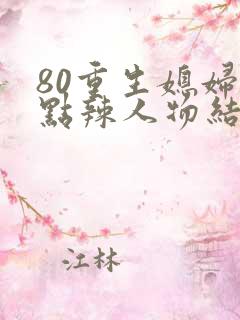 80重生媳婦
點辣人物結
江林